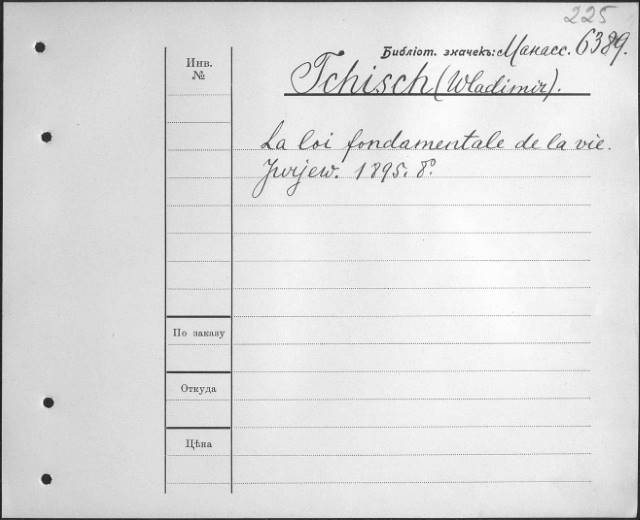 225
Библіот. значекъ: Манасс. 6389.
Инв.
№
Tchisch (Wladimir).
La loi fondamentale de la vie.
Jurjew. 1895. 8º
По заказу
Откуда
Цѣна